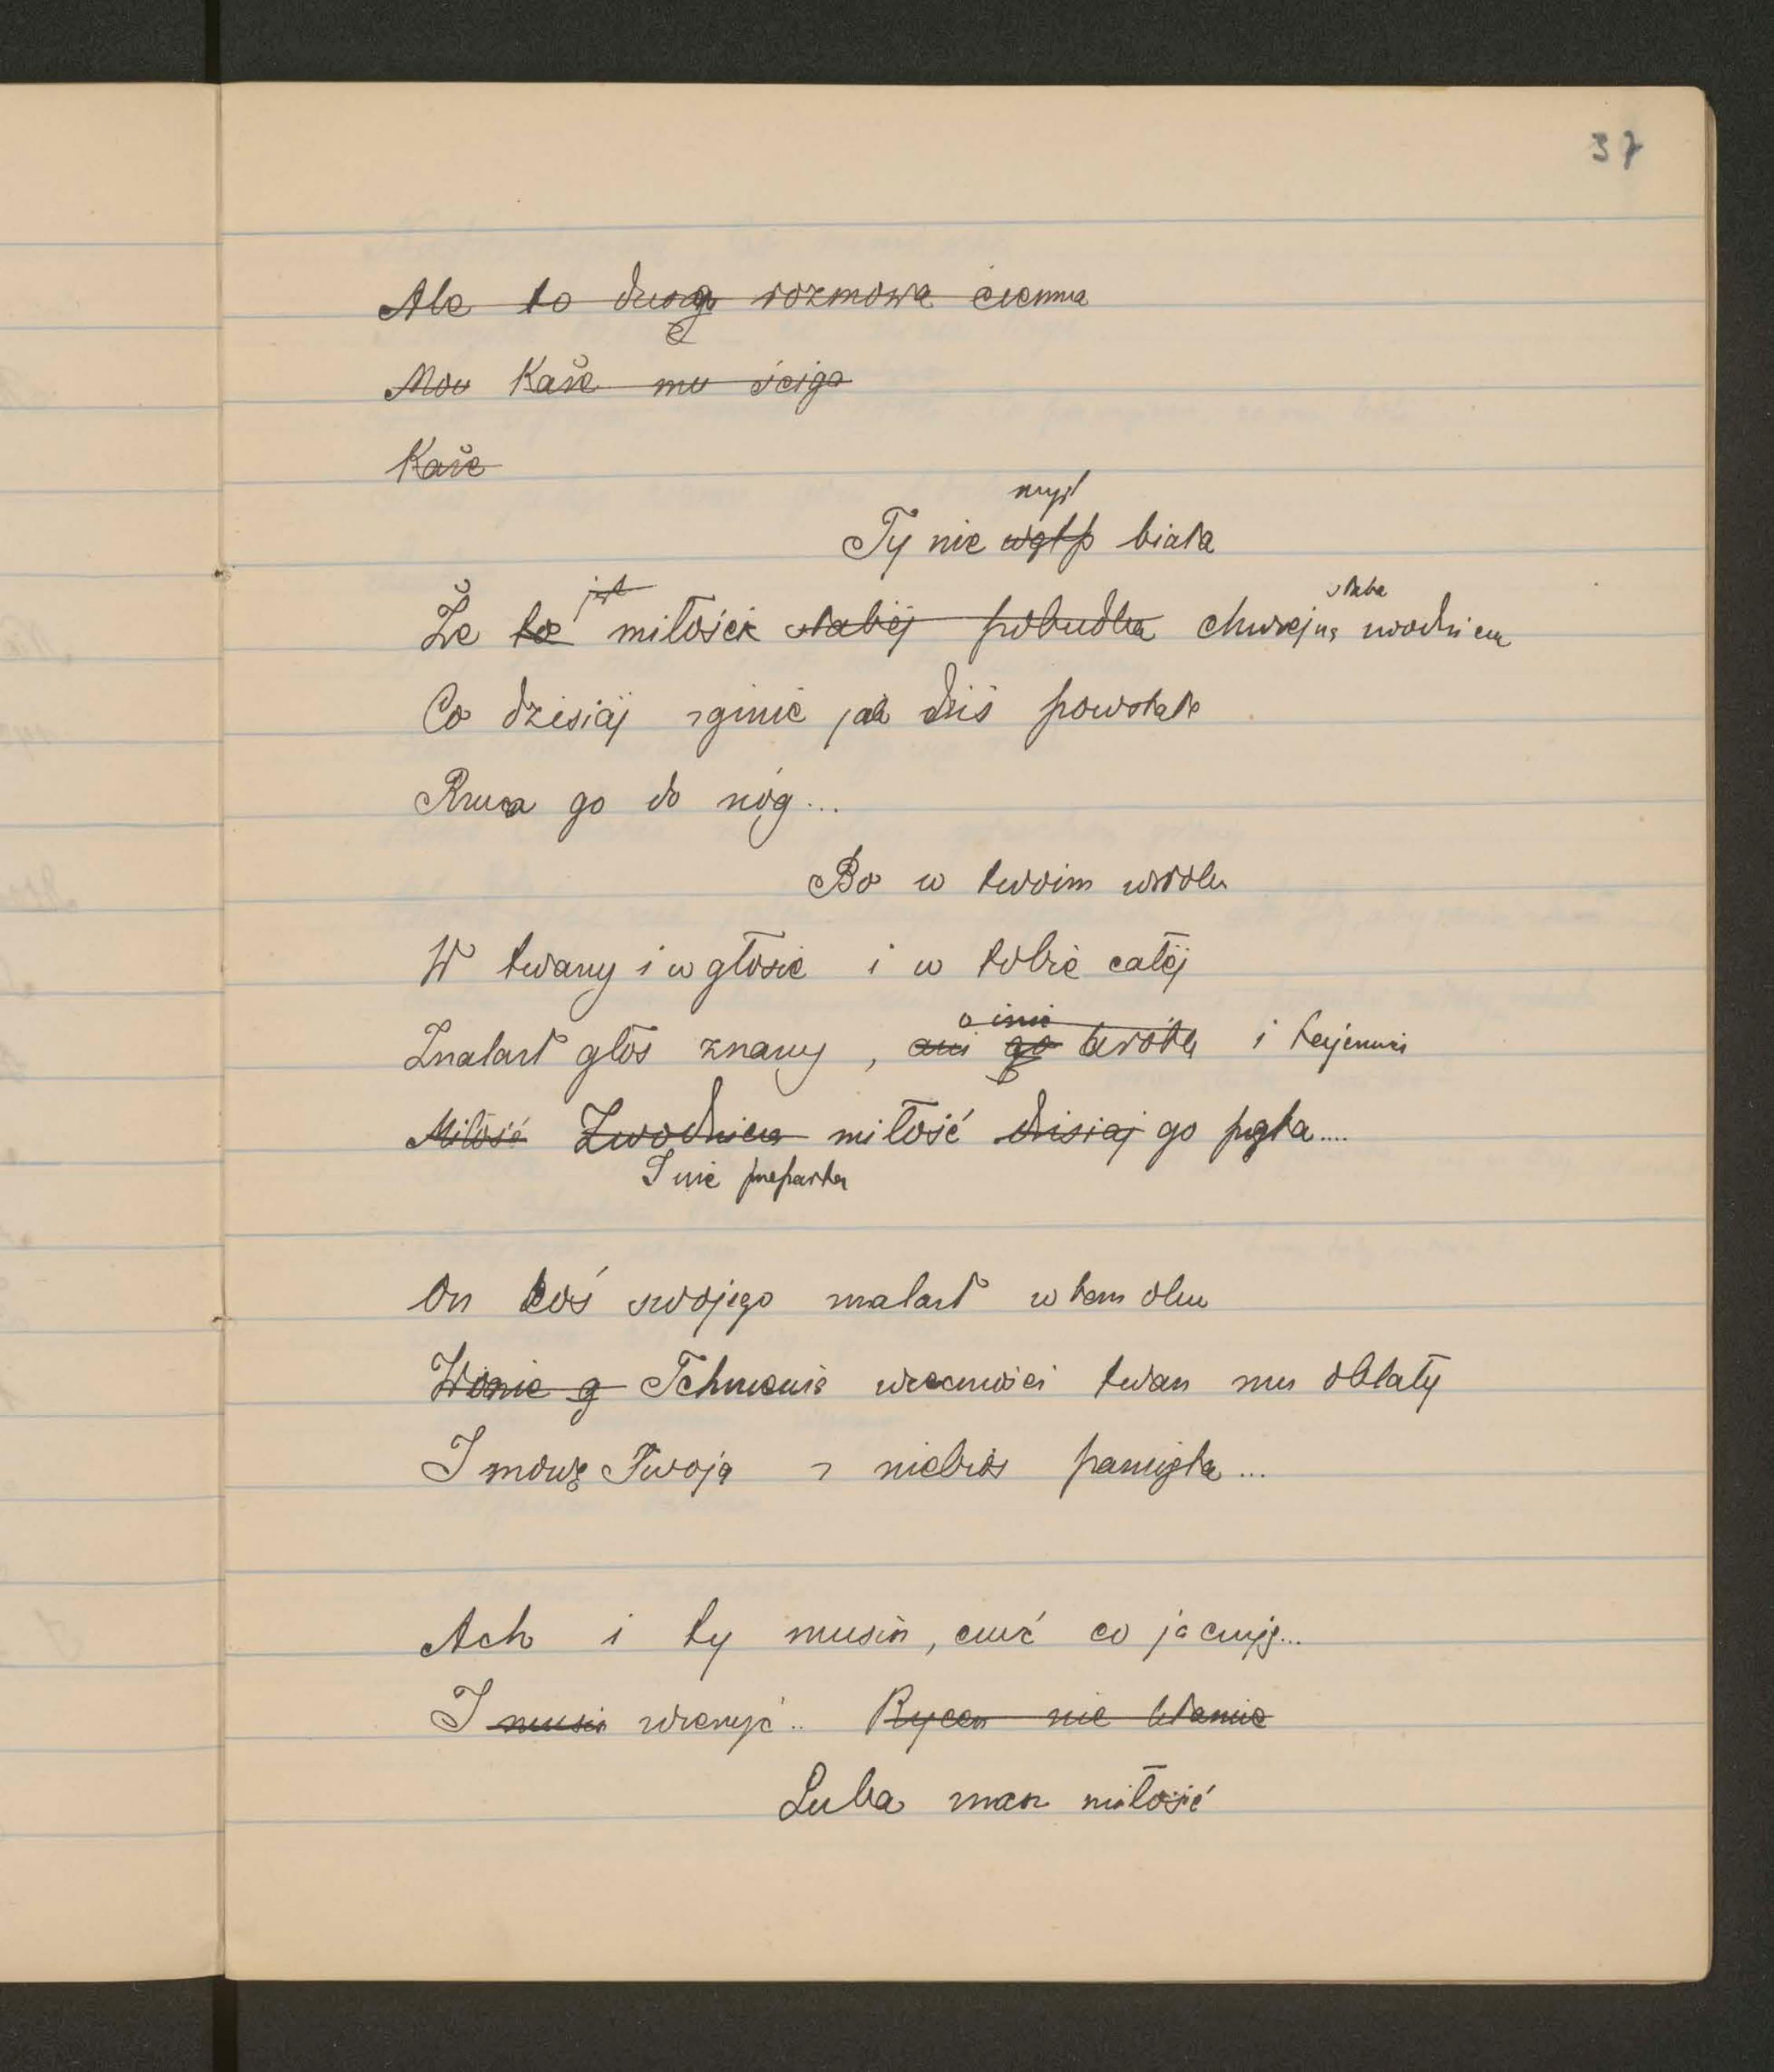 37
Ale to drogo rozmowa ciemna
Mow Każe mu ściga
Każe
myśl
Ty nie wątp biała
jest słaba
Że to miłości słabej pobudka chwieją zwodnicza
Co dzisiaj zginie jak dziś powstała
Rzuca go do nóg...
Bo w twoim wzroku
W twarzy i w głosie i w tobie całej
o inie
Znalazł głos znany, ani go krótka i tajemnic
Miłość Zwodnicza miłość dzisiaj go pęta....
I nie przeparta
On coś swojego znalazł w tem oku
Wonie g Tchnienia wieczności twarz mu oblały
I mowę Twoją z niebios pamięta...
Ach i ty musisz, czuć co ja czuję...
I musisz wierzyć.. Rycerz nie kłamie
Luba znasz miłość